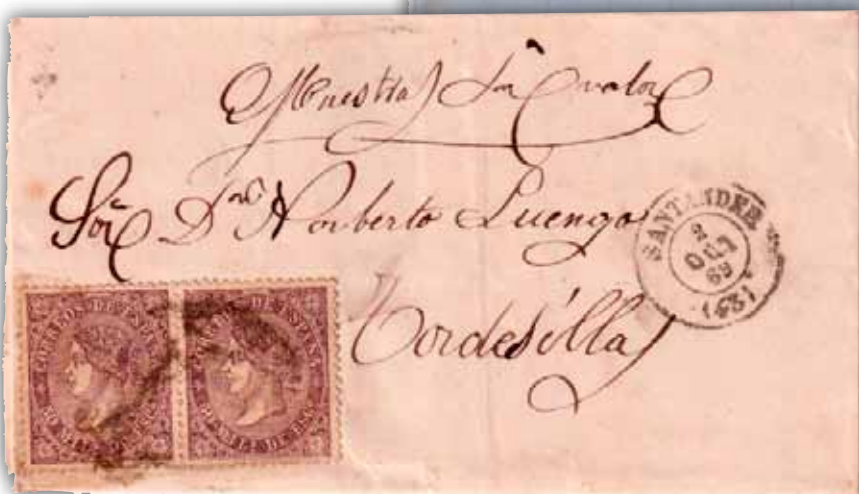 Muestra Sin valor
Sor Dn Norberto Luengo
Tordesilla
SANTANDER
OCT
69
(42)
CORREOS DE ESPAÑA
CORREOS DE ESPAÑA
MIL. DE ES.